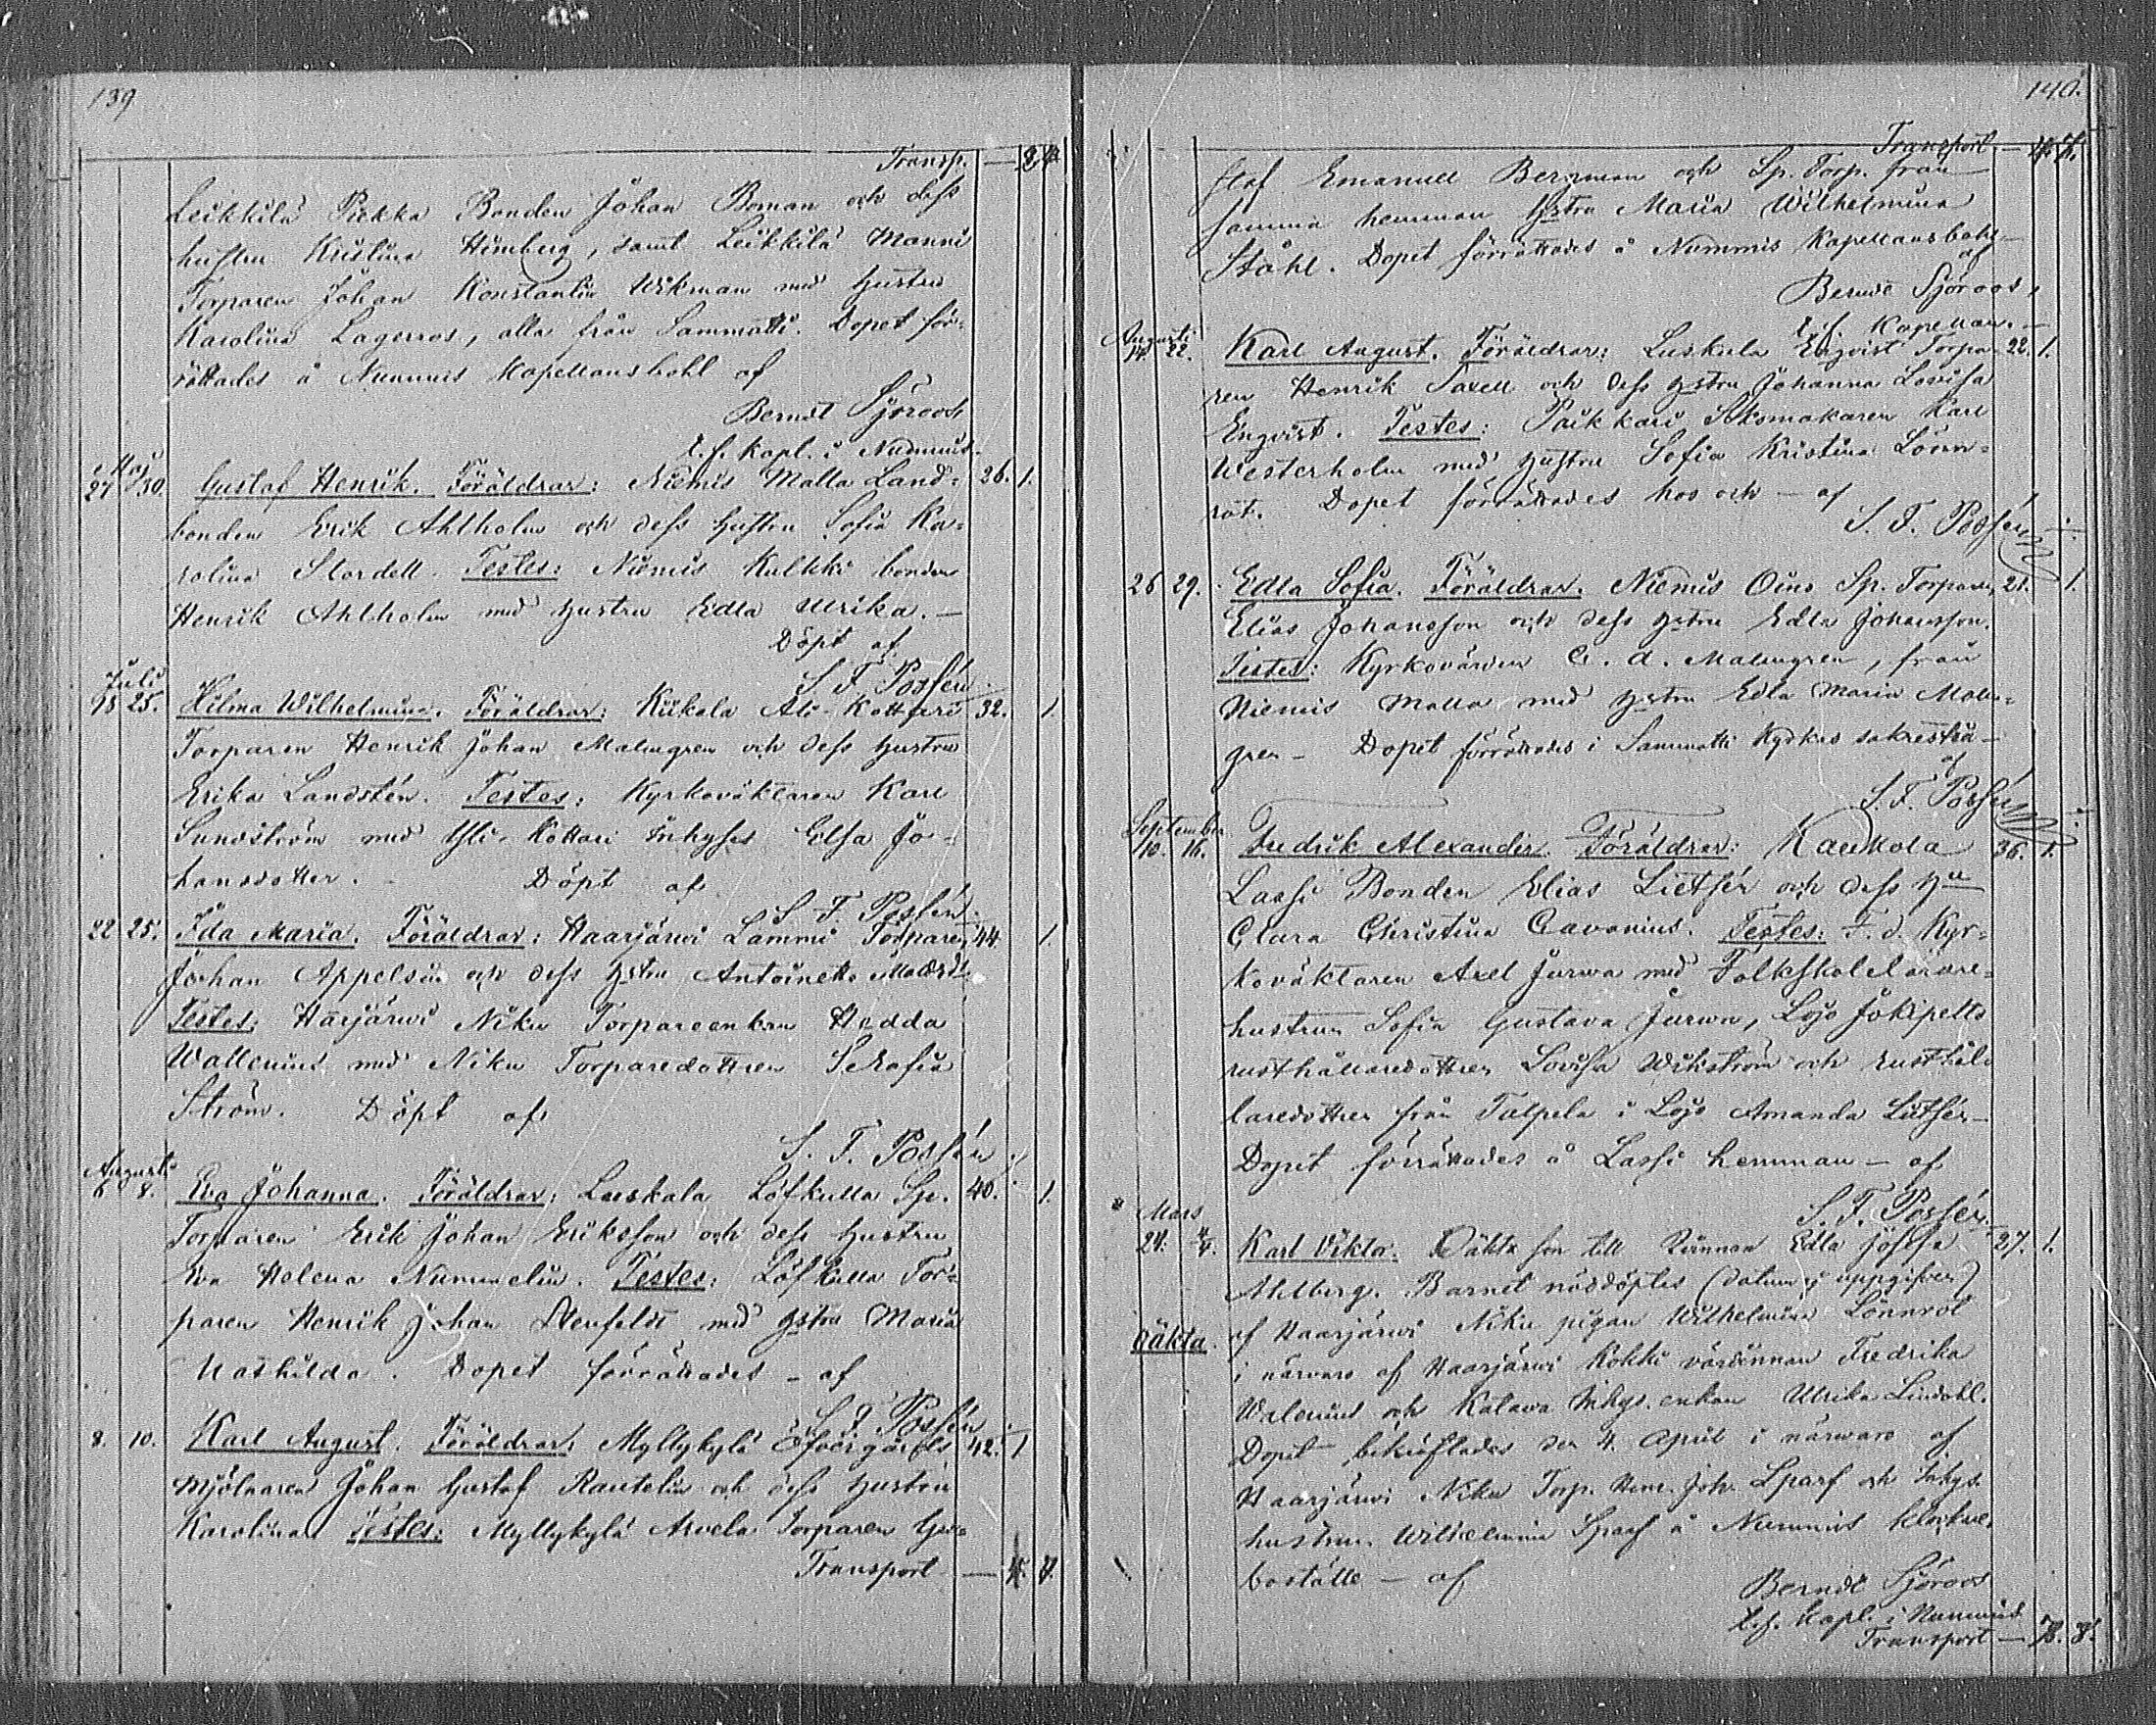 139
Transp. —
Leikkilä Pekka Bonden Johan Boman och dess
hustru Kristina Himberg, samt Leikkilä Manni
Torparen Johan Konstantin Wikman med hustru
Karolina Lagerros, alla från Sammatti. Dopet för-
rättades å Nummis Kapellansbohl af
Berndt Sjöroos
t.f. Kapl. i Nummis.
Maj
27 30. Gustaf Henrik. Föräldrar: Niemis Malla Land- 26. 1.
bonden Erik Ahlholm och dess hustru Sofia Ka-
rolina Stordell. Testes: Niemis Kulkki bonden
Henrik Ahlholm med hustru Edla Ulrika. —
Döpt af
S. F. Possén.
Juli
18 25. Hilma Wilhelmina. Föräldrar: Kiikala Ali-Kottari 32. 1.
Torparen Henrik Johan Malmgren och dess hustru
Erika Landstén. Testes: Kyrkoväktaren Karl
Sundström med Yli-Kottari Inhyses Elsa Jo-
hansdotter. Döpt af
S. F. Possén.
22 25. Ida Maria. Föräldrar: Haarjärwi Lammi Torparen 44. 1.
Johan Appelsin och dess hstru Antoinette
Testes: Harjärwi Niku Torpareenkan Hedda
Wallenius med Niku Torparedottren Serafia
Ström. Döpt af
S. F. Possén.
Augusti
6 8. Eva Johanna. Föräldrar: Luskala Löfkulla Sp. 40. 1.
Torparen Erik Johan Eriksson och dess hustru
Eva Helena Nummelin. Testes: Löfkulla Tor-
paren Henrik Johan Stenfeldt med hstru Maria
Mathilda. Dopet förrättades — af
S. F. Possén
8. 10. Karl August. Föräldrar: Myllykylä Öfvergårds 42. 1
Mjölnaren Johan Gustaf Rautelin och dess hustru
Karolina Testes: Myllykylä Arvela Torparen Gu-
Transport —
140.
Transport —
staf Emanuel Berzman och Sp. Torp. från
samma hemman hstru Maria Wilhelmina
Ståhl. Dopet förrättades å Nummis Kapellansbohl
af
Berndt Sjöroos,
t.f. Kapellan. —
Augusti
14. 22. Karl August. Föräldrar: Luskala Enqvist Torpa- 22. 1.
ren Henrik Saxell och dess hstru Johanna Lovisa
Enqvist. Testes: Paikkari Skomakaren Karl
Westerholm med hustru Sofia Kristina Lönn-
rot. Dopet förrättades hos och — af
S. F. Possén
26 29. Edla Sofia. Föräldrar. Niemis Oino Sp. Torparen 21. 1.
Elias Johansson och dess hstru Edla Johansson.
Testes: Kyrkovärden C. A. Malmgren, från
Niemis Malla med hstru Edla Maria Malm-
gren — Dopet förrättades i Sammatti Kyrkas sakrestia —
af
S. F. Possén
September
10. 16. Fredrik Alexander. Föräldrar: Kaukola 36. 1.
Lassi Bonden Elias Lietsén och dess hu
Clara Christina Cavonius. Testes: F. d. Kyr-
koväktaren Axel Jurwa med Folkskolelärare-
hustrun Sofia Gustava Jurwa, Lojo Jokipelto
rusthållaredottren Lovisa Wikström och rusthål-
laredottren från Talpela i Lojo Amanda Lietsén —
Dopet förrättades å Lassi hemman — af
S. F. Possén.
Mars
24. 4/4. Karl Viktor. Oäkta son till Qvinnan Edla Josefa 27. 1.
Ahlberg. Barnet nöddöptes (datum ej uppgifven)
Oäkta. af Haarjärwi Niku pigan Wilhelmina Lönnrot
i närvaro af Haarjärwi Kokki värdinnan Fredrika
Walenius och Kalawa Inhys. enkan Ulrika Lindahl.
Dopet bekräftades den 4. April i närwaro af
Haarjärwi Niku Torp. Henr. Joh. Sparf och Inhys.
hustrun Wilhelmina Sparf å Nummis klockare-
boställe — af
Berndt Sjöroos
t.f. Kapl. i Nummis
Transport —